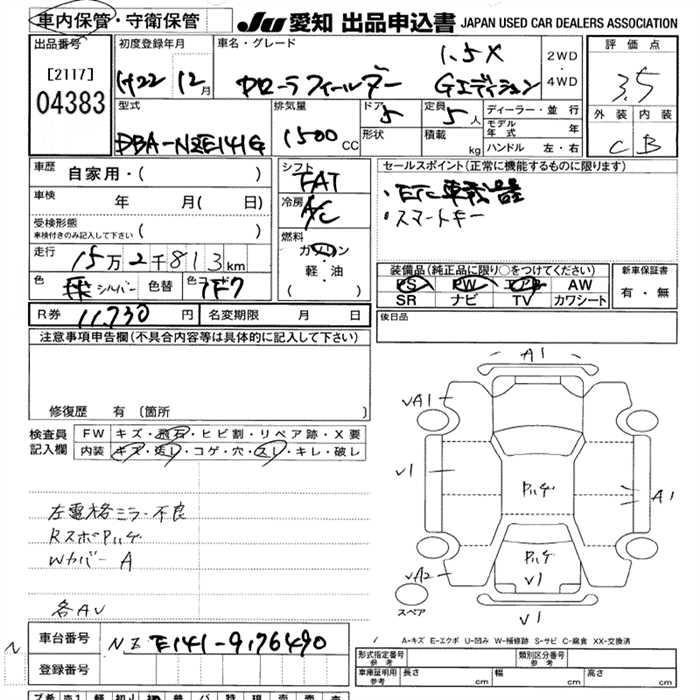 車内保管・守衛保管
JU 愛知 出品申込書 JAPAN USED CAR DEALERS ASSOCIATION
出品番号
[2117]
04383
初度登録年月
H22年 12月
車名・グレード
1.5X
カローラフィールダー Gエディション
2WD
・
4WD
評価点
3.5
外装 内装
C B
型式
DBA-NZE141G
排気量
1500 CC
ドア
5
形状
定員
5人
積載
kg
ディーラー・並行
モデル年式 年
ハンドル 左・右
車歴 自家用・( )
車検 年 月( 日)
受検形態
車検付きのみ記入して下さい ( )
走行 15万2千813km
色 シルバー 色替 色コード 1F7
R券 11,730円 名変期限 月 日
シフト
FAT
冷房
A/C
燃料
ガソリン
・
軽・油
( )
セールスポイント(正常に機能するものに限ります)
・スマートキー
装備品(純正品に限り〇をつけてください)
PS PW エアB AW
SR ナビ TV カワシート
新車保証書
有・無
後日品
注意事項申告欄(不具合内容等は具体的に記入して下さい)
修復歴 有 〔箇所 〕
検査員記入欄
FW キズ・飛石・ヒビ割・リペア跡・X要
内装 キズ・汚し・コゲ・穴・スレ・キレ・破レ
左電格ミラー不良
RスポPハゲ
Wカバー A
各AU
A1
VA1
V1
Pハゲ
A1
Pハゲ
V1
VA2
スペア
V1
A-キズ E-エクボ U-凹み W-補修跡 S-サビ C-腐食 XX-交換済
車台番号 NZE141-9176490
登録番号
形式指定番号
参考
類別区分番号
参考
車庫証明用
参考
長さ cm 幅 cm 高さ cm